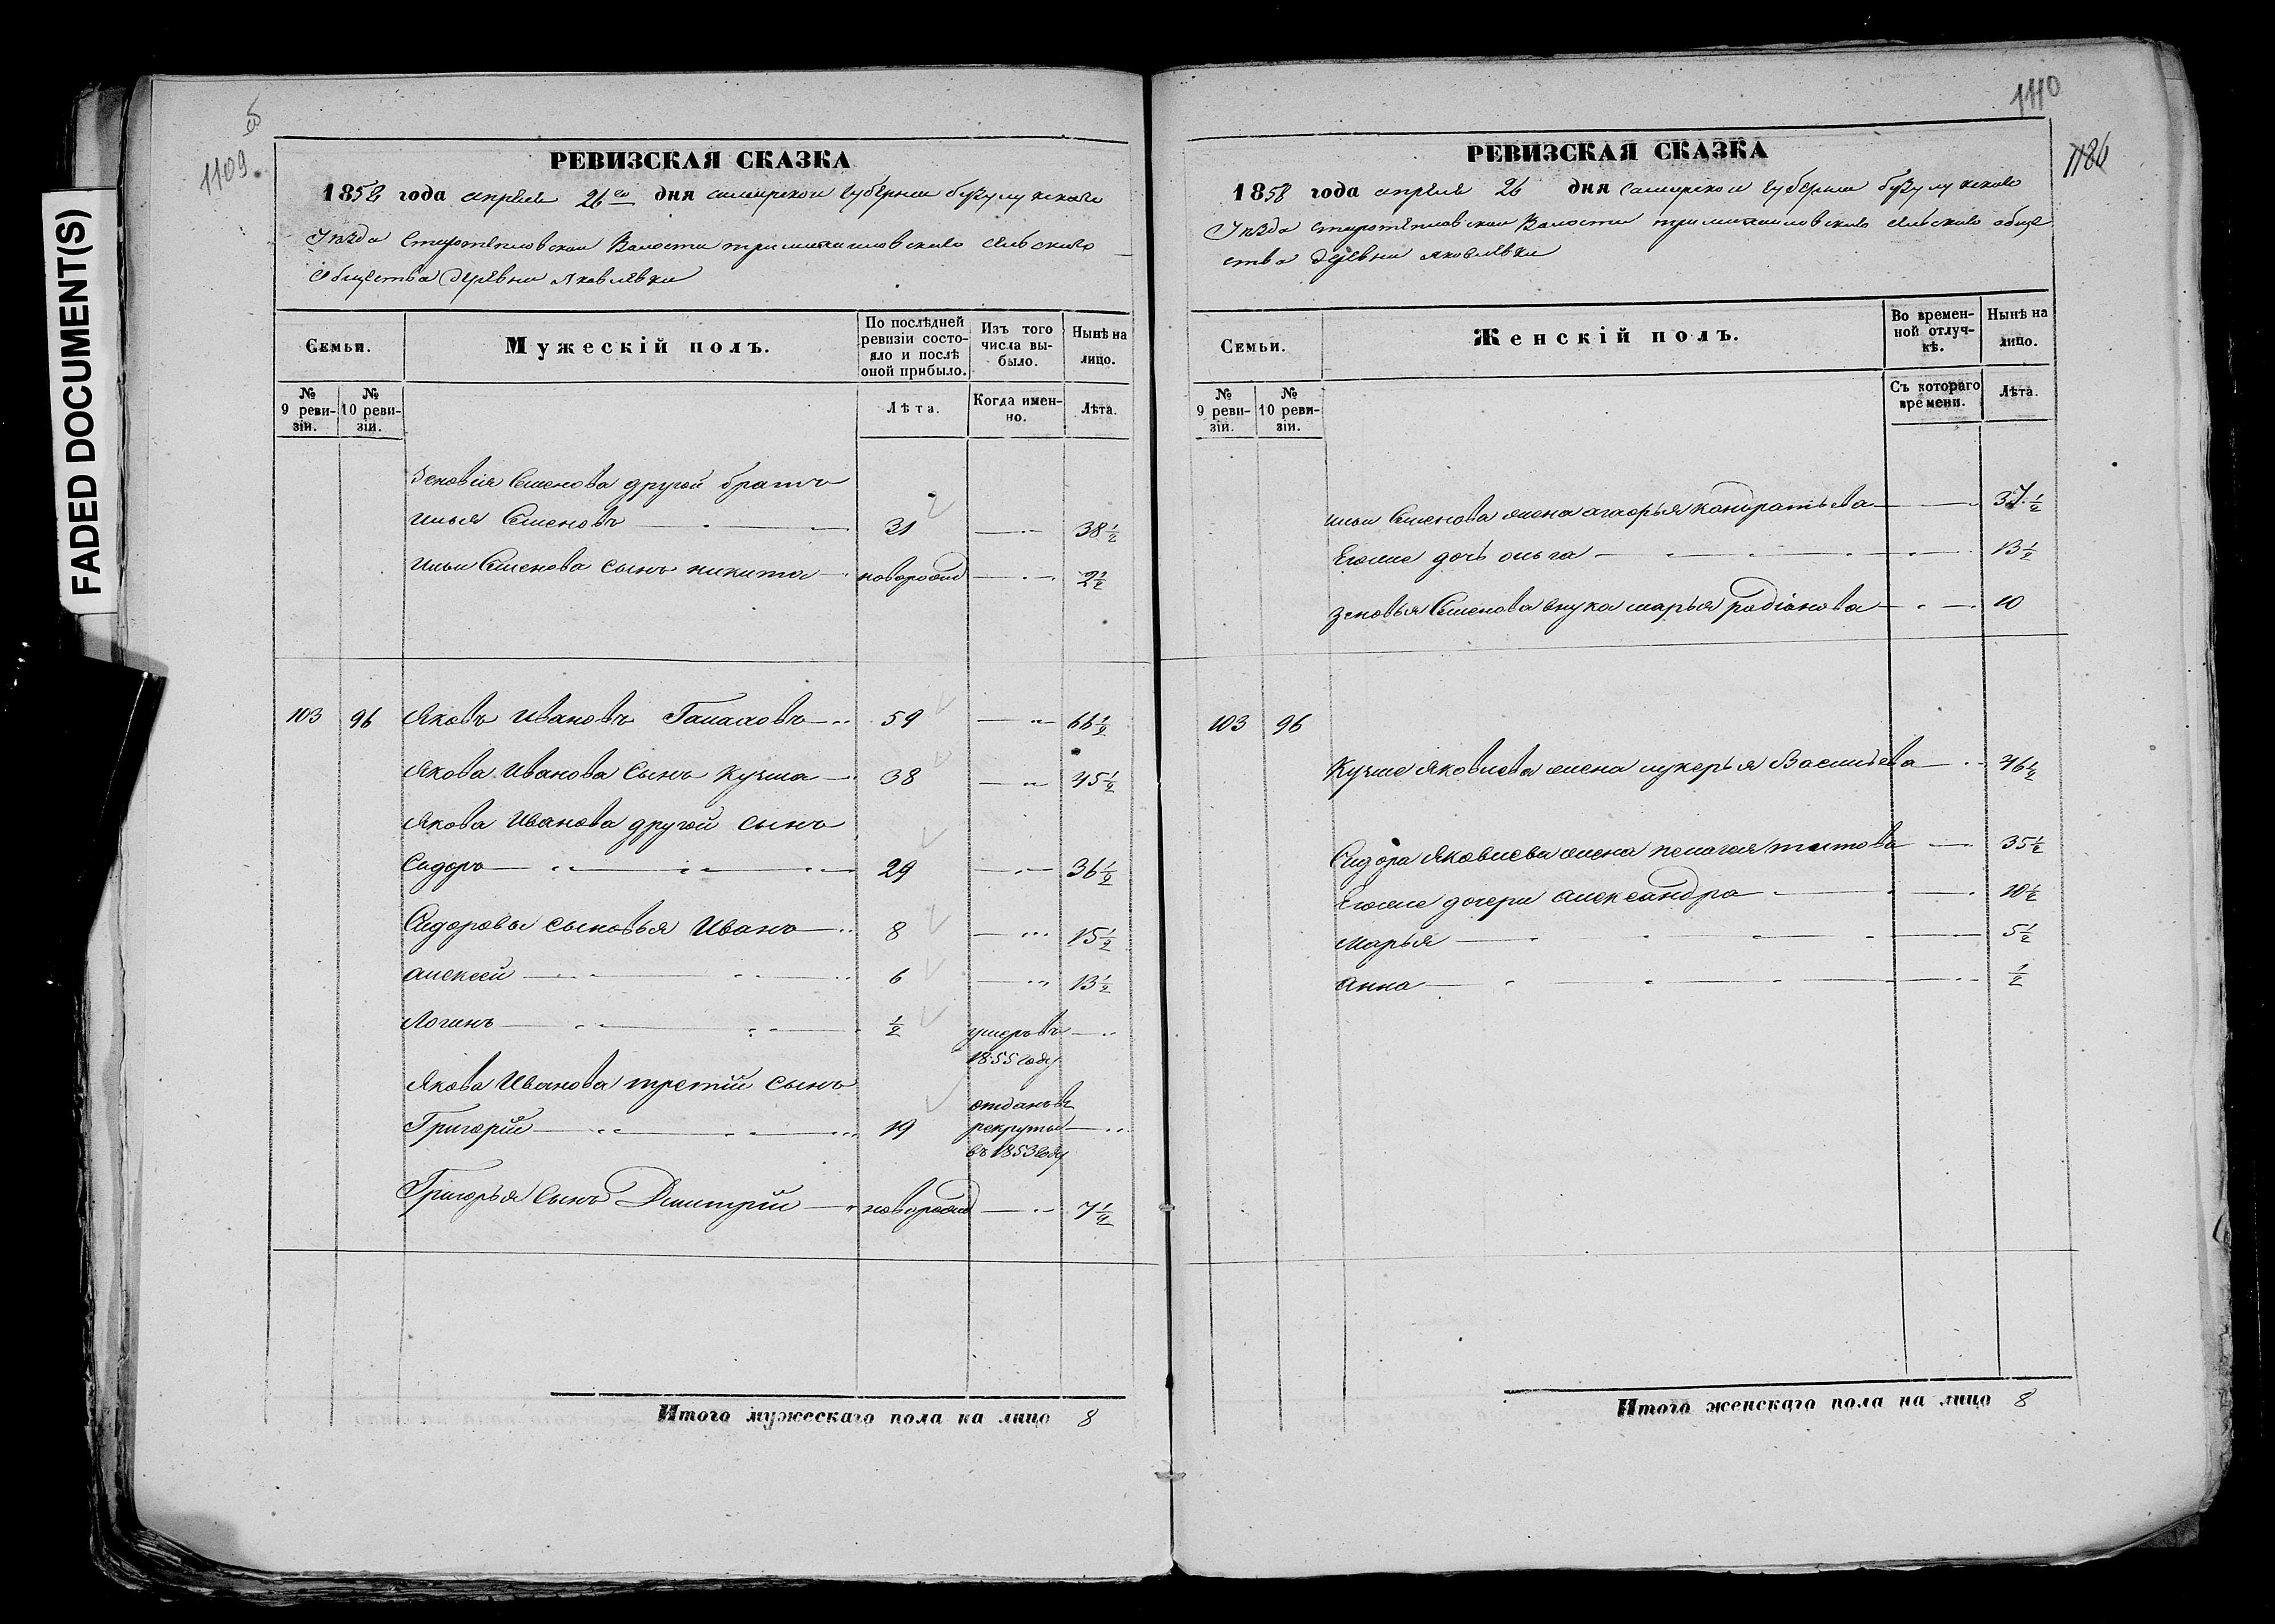 FADED DOCUMENT(S)
1109.
РЕВИЗСКАЯ СКАЗКА
1858 года апреля 26го дня самарской губернии бузулукскаго
Уезда Старотепловской Волости тримихаиловскаго сельскаго
Общества деревни Яковлевки
Семьи.
Мужескій полъ.
По послѣдней ревизіи состояло и послѣ оной прибыло.
Изъ того числа выбыло.
Нынѣ на лицо.
№ 9 ревизіи.
№ 10 ревизіи.
Лѣта.
Когда именно.
Лѣта.
Зеновія Семенова другой братъ
Илья Семеновъ 31 38½
Ильи Семенова сынъ никита новорожд 2½
103 96 Яковъ Ивановъ 59 66½
Якова Иванова сынъ Кузма 38 45½
Якова Иванова другой сынъ
Сидоръ 29 36½
Сидоровы сыновья Иванъ 8 15½
алексей 6 13½
Логинъ ½ умеръ въ
1855 году
Якова Иванова третій сынъ
Григорій 19 отданъ въ
рекруты
въ 1853 году
Григорья сынъ Дмитрій новорожд 7½
Итого мужескаго пола на лицо 8
1110
1186
РЕВИЗСКАЯ СКАЗКА
1858 года апреля 26 дня самарской губернии бузулукскаго
Уезда старотепловской Волости тримихаиловскаго сельскаго обще
ства деревни яковлевки
Семьи.
Женскій полъ.
Во временной отлучкѣ.
Нынѣ на лицо.
№ 9 ревизіи.
№ 10 ревизіи.
Съ котораго времени.
Лѣта.
ильи Семенова жена агафья кондратьева 37½
Егоже дочь ольга 13½
Зеновья Семенова внука марья радіонова 10
103 96
Кузме Яковлева жена лукерья Васильева 46½
Сидора Яковлева жена пелагея титова 35½
Егоже дочери александра 10½
марья 5½
анна ½
Итого женскаго пола на лицо 8